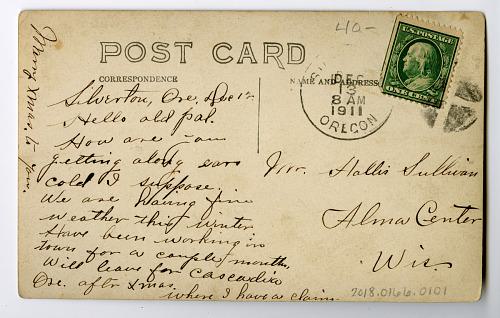 Merry Xmas to you.
40-
POST CARD
CORRESPONDENCE
NAME AND ADDRESS
U.S. POSTAGE
ONE CENT
DEC
13
8 AM
1911
OREGON
Silverton, Ore, Dec 12
Hello old pal.
How are you
getting along
cold I suppose.
We are having fine
weather this winter
Have been working in
town for a couple months.
Will leave for Cascadia
Ore. aftr Xmas.
where I have a claim
Mr. Hallis Sullivan
Alma Center
Wis.
2018.0166.0101